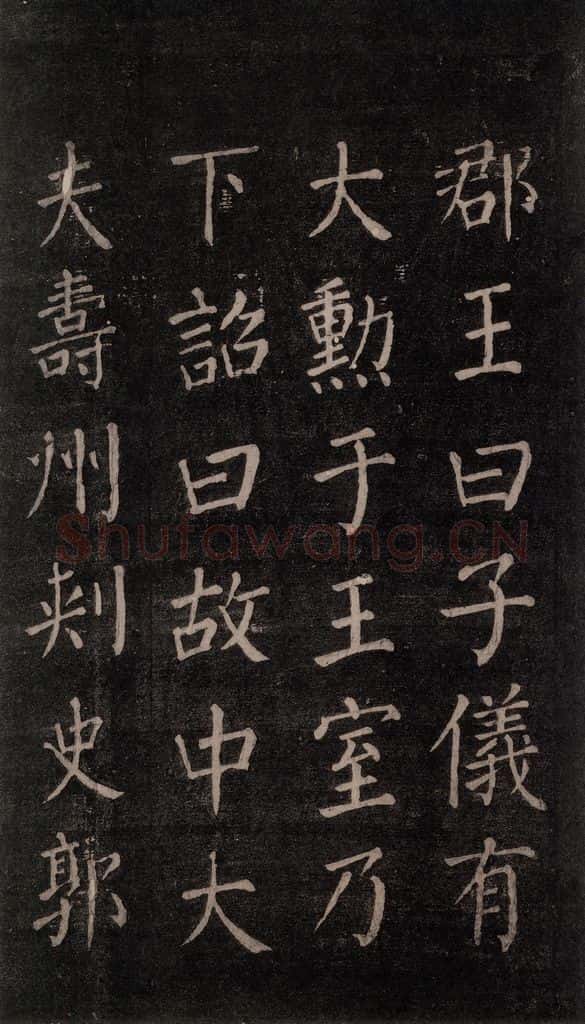 郡王曰子儀有
大勲于王室乃
下詔曰故中大
夫壽州刾史郭
Shufawang.CN